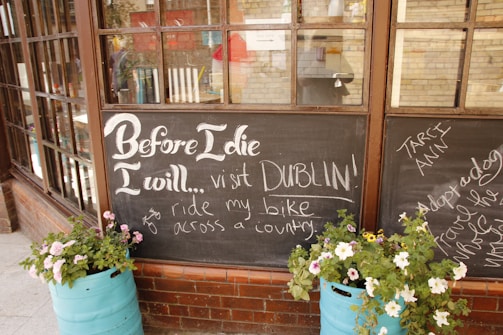 Before I die
I will... visit DUBLIN!
ride my bike
across a country.
TARCI
ANN
Adopt a dog
Travel the